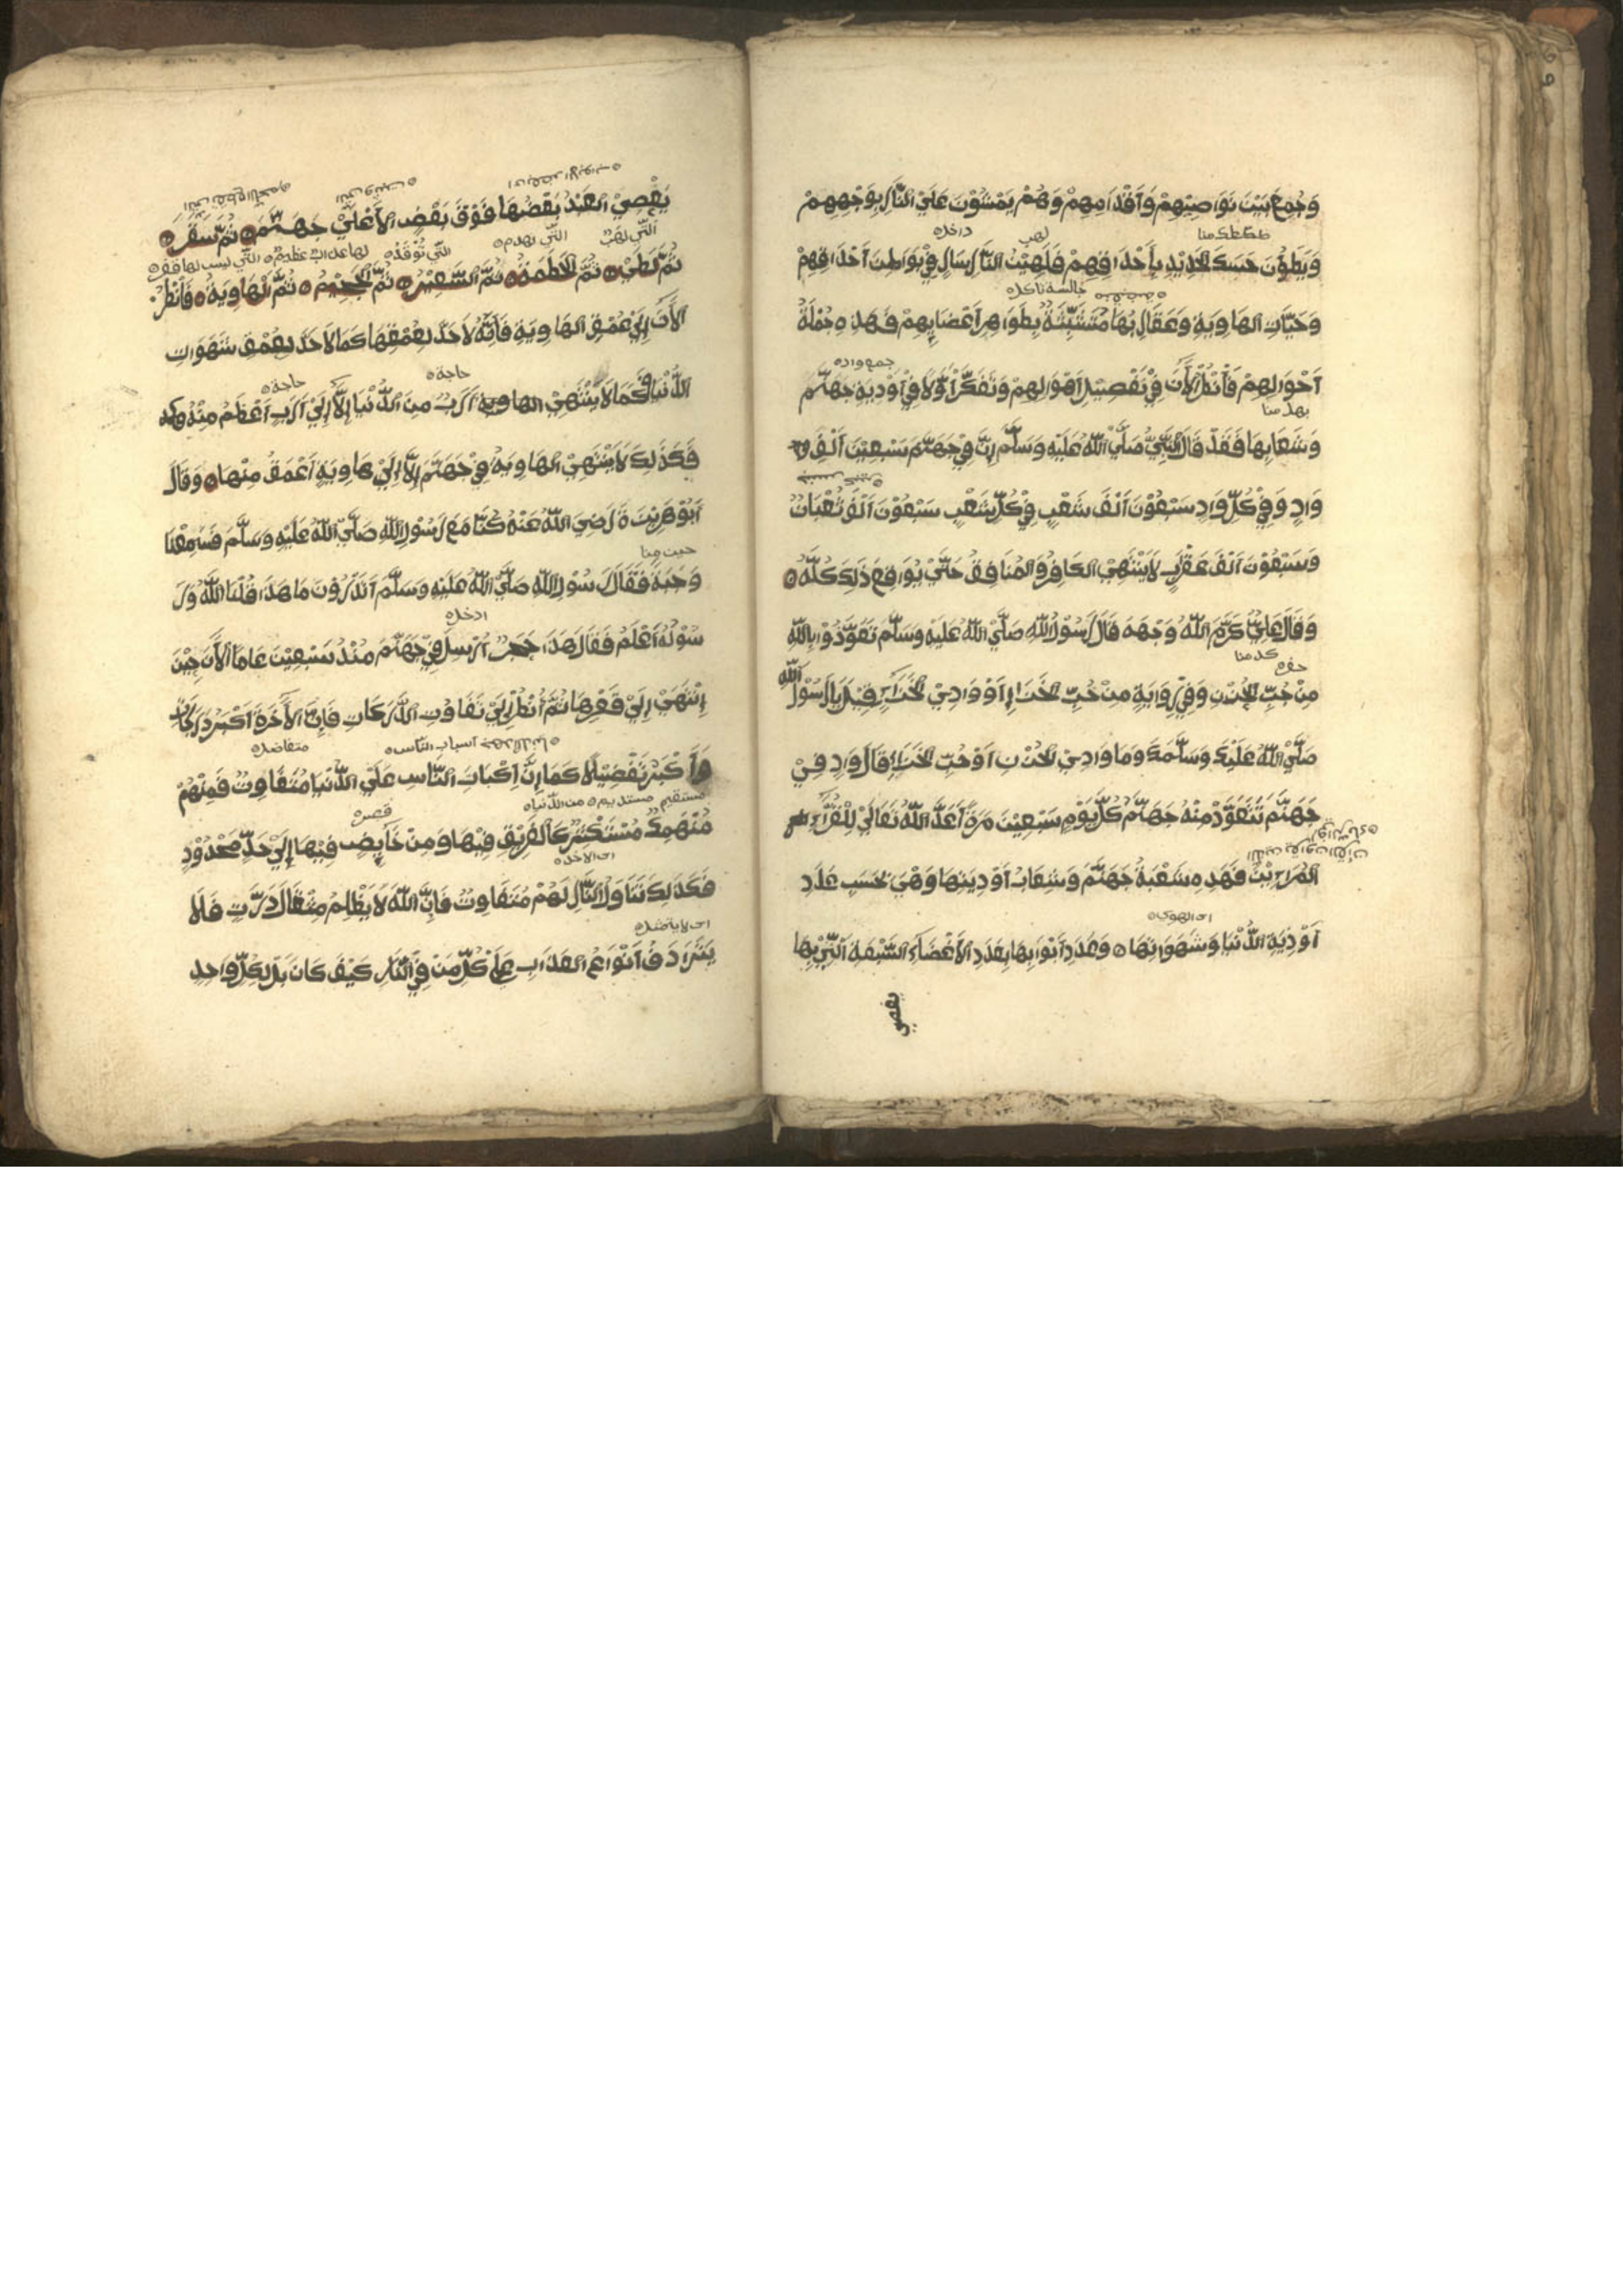 وَجُمِعَ بَيْنَ نَوَاصِيْهِمْ وَاَقْدَامِهِمْ وَهُمْ يَمْشُوْنَ عَلَيْ النَّارِ بِوَجْهِهِمْ
داخله
لهب
وَيَطَؤُنَ حَسَكَ الْحَدِيْدِ بِأَحْدَاقِهِمْ فَلَهِيْبُ النَّارِ سَارٍ فِيْ بَوَاطِنَ اَحْدَاقِهِمْ
وَحَيَّاتِ الهَاوِيَةِ وَعَقَارِبُهَا مُتَشَبِّثَةٌ بِظَوَاهِرِ اَعْضَايِهِمْ فَهَذِهِ جُمْلَةُ
جمع واد
اَحْوَالِهِمْ فَأنْظُرْ اَلْأَنَ فِيْ تَفْصِيْلِ اَهْوَالِهِمْ وَتَفَكَّرْ اَوَّلًا فِيْ اَوْدِيَةِ جَهَنَّمَ
وَشَعَابِهَا فَقَدْ قَالَ النَّبِيُّ صَلَّيْ اللّٰهُ عَلَيْهِ وَسَلَّمَ اِنَّ فِيْ جَهَنَّمَ سَبْعِيْنَ اَلْفِ
وَادٍ وَفِيْ كُلِّ وَادٍ سَبْعُوْنَ اَلْفَ شَعْبٍ فِيْ كُلِّ شَعْبٍ سَبْعُوْنَ اَلْفَ ثُعْبَانٌ
وَسَبْعُوْنَ اَلْفَ عَقْرَبٍ لَايَنْتَهِيْ الكَافِرُ وَالمُنَافِقُ حَتَّيْ يُوَاقِعَ ذَلِكَ كُلَّهُ
وَقَالَ عَلِيٌّ كَرَّمَ اللّٰهُ وَجْهَهَ قَالَ رَسُوْلُ اللّٰهِ صَلَّيْ اللّٰهُ عَلَيْهِ وَسَلَّمَ تَعَوَّذُوْا بِاللّٰهِ
حفره
مِنْ جُبِّ الْحُزْنِ وَفِيْ رِوَايَةٍ مِنْ جُبِّ الْحَزَنِ اَوْ وَادِيْ الْحَزَنِ قِيْلَ يَا رَسُوْلَ اللّٰهِ
صَلَّيْ اللّٰهُ عَلَيْكَ وَسَلَّمَكَ وَمَا وَادِيْ الْحُزْنِ اَوْ جُبِّ الْحَزَنِ قَالَ وَادٍ فِيْ
جَهَنَّمَ تَتَعَوَّذُ مِنْهُ جَهَنَّمُ كُلَّ يَوْمٍ سَبْعِيْنَ مَرَةً اَعَدَّ اللّٰهُ تَعَالَيْ لِلْقُرَّآءِ
المُرَاءِيْنَ فَهَذِهِ شَعْبَةُ جَهَنَّمَ وَشِعَابُ اَوْدِيَتِهَا وَهْيَ بِحَسَبِ عَدَدِ
اى الهوى
اَوْدِيَةِ الدُّنْيَا وَشَهَوَاتِهَا وَعَدَدِ اَبْوَابِهَا بِعَدَدِ الْأَعْضَاءِ السَّبْعَةِ اَلَّتِيْ بِهَا
يعصى
يَعْصِيْ العَبْدُ بَعْضُهَا فَوْقَ بَعْضٍ الْأَعْلَيْ جَهَنَّمَ ثُمَّ سَقَرَ
التي لهب التي تهدم التي توقد
ثُمَّ لَظَيْ ثُمَّ الْحُطَمَةُ ثُمَّ السَّعِيْرُ ثُمَّ الْجَحِيْمُ ثُمَّ اَلْهَاوِيَةُ فَأنْظُرْ
الْأَنَ اِلَيْ عُمْقِ الهَاوِيَةِ فَاِنَّهُ لَاحَدَّ لِعُمْقِهَا كَمَا لَاحَدَّ لِعُمْقِ شَهَوَاتِ
حاجة حاجة
الدُّنْيَا فَكَمَا لَايَنْتَهِيْ اَرَبٌ مِنَ الدُّنْيَا اِلَّا اِلَيْ اَرَبٍ اَعْظَمُ مِنْهُ
فَكَذَلِكَ لَايَنْتَهِيْ الهَاوِيَةُ فِيْ جَهَنَّمَ اِلَّا اِلَيْ هَاوِيَةٍ اَعْمَقُ مِنْهَا وَقَالَ
اَبُوْهُرَيْرَةَ رَضِيَ اللّٰهُ عَنْهُ كُنَّا مَعَ رَسُوْلِ اللّٰهِ صَلَّيْ اللّٰهُ عَلَيْهِ وَسَلَّمَ فَسَمِعْنَا
وَجَبَةً فَقَالَ رَسُوْلُ اللّٰهِ صَلَّيْ اللّٰهُ عَلَيْهِ وَسَلَّمَ اَتَدْرُوْنَ مَا هَذَا قُلْنَا اللّٰهُ وَرَ
ادخل
سُوْلُهُ اَعْلَمُ فَقَالَ هَذَا حَجَرٌ اُرْسِلَ فِيْ جَهَنَّمَ مُنْذُ سَبْعِيْنَ عَامًا الْأَنَ حِيْنَ
اِنْتَهَيْ اِلَيْ قَعْرِهَا ثُمَّ اُنْظُرْ اِلَيْ تَفَاوُتِ الدَّرَكَاتِ فَاِنَّ الْأَخِرَةَ اَكْبَرُ دَرَجَاتٍ
متفاضل
وَاَكْبَرُ تَفْضِيْلًا كَمَا اِنَّ اِكْبَابَ النَّاسِ عَلَيْ الدُّنْيَا مُتَفَاوِتٌ فَمِنْهُمْ
مُنْهَمِكٌ مُسْتَكْثِرٌ كَالْغَرِيْقِ فِيْهَا وَمِنْ خَائِضٍ فِيْهَا اِلَيْ حَدٍّ مَحْدُوْدٍ
فَكَذَلِكَ تَنَاوَلُ النَّارِ لَهُمْ مُتَفَاوِتٌ فَاِنَّ اللّٰهَ لَايَظْلِمُ مِثْقَالَ ذَرَّتٍ فَلَا
يَتَرَادَفُ اَنْوَاعُ العَذَابِ عَلَيْ كُلِّ مَنْ فِيْ النَّارِ كَيْفَ كَانَ بَلْ لِكُلِّ وَاحِدٍ